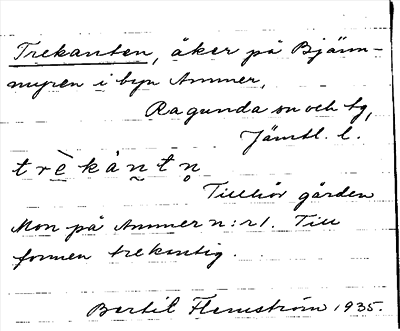 Trekanten, åker på Bjärn-
myren i byn Ammer,
Ragunda sn och tg,
Jämtl. l.
trèkántn̥
Tillhör gården
Mon på Ammer n:r 1. Till
formen trekantig.
Bertil Flemström 1935.